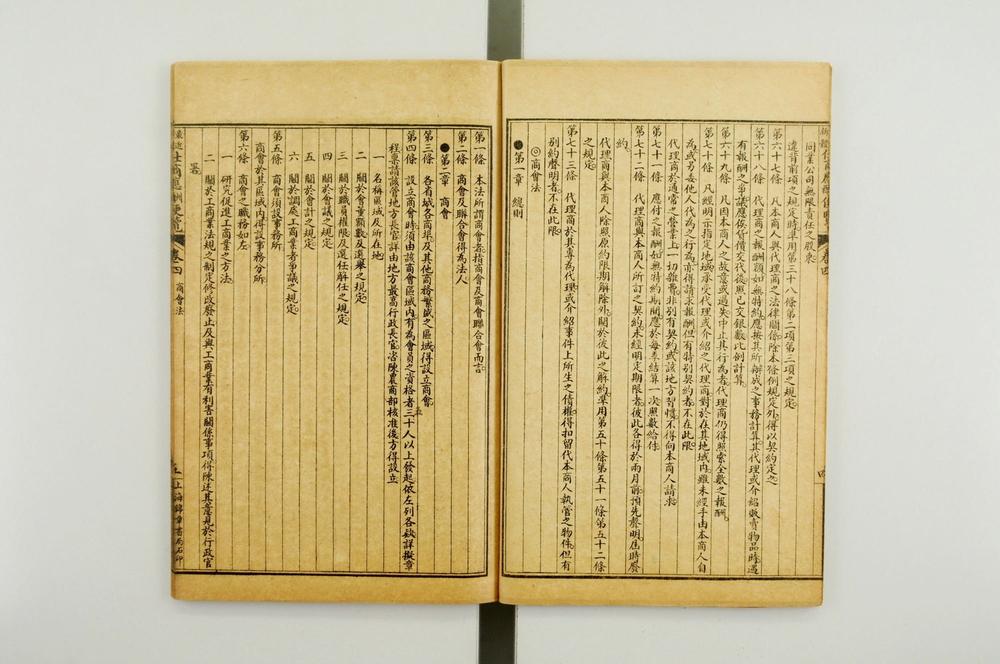 同業公司無限責任之股東
違背前項之規定時準用第三十八條第二項第三項之規定
第六十七條 凡本商人與代理商之法律關係除本條例規定外得以契約定之
第六十八條 代理商之報酬額如無特約應按其所辦成之事務計算其代理或介紹販賣物品時遇
有報酬之爭議應俟行價交代後照已交銀數比例計算
第六十九條 凡因本商人之故意或過失中止其行為者代理商仍得照索全數之報酬
第七十條 凡經明示指定地域承受代理或介紹之代理商對於在其地域內雖未經手由本商人自
為或另委他人代為之行為亦得請求報酬但有特別契約者不在此限
代理商於通常之營業上一切雜費非別有契約或該地方習慣不得向本商人請求
第七十一條 應付之報酬如無特約期間應於每季結算一次照數給付
第七十二條 代理商與本商人所訂之契約未經明定期限者彼此各得於兩月前預先聲明屆時廢
約
代理商與本商人除照原約限期解除外關於彼此之解約準用第五十條第五十一條第五十二條
之規定
第七十三條 代理商於其專為代理或介紹事件上所生之債權得扣留代本商人執管之物件但有
別約聲明者不在此限
◎商會法
●第一章 總則
第一條 本法所謂商會者指商會及商會聯合會而言
第二條 商會及聯合會得為法人
●第二章 商會
第三條 各省城各商埠及其他商務繁盛之區域得設立商會
第四條 設立商會時須由該商會區域內有為會員之資格者三十人以上發起依左列各款詳擬章
程稟請該管地方長官詳由地方最高行政長官咨陳農商部核准後方得設立
一 名稱區域及所在地
二 關於會董額數及選舉之規定
三 關於職員權限及選任解任之規定
四 關於會議之規定
五 關於會計之規定
六 關於調處工商業者爭議之規定
第五條 商會須設事務所
商會於其區域內得設事務分所
第六條 商會之職務如左
一 研究促進工商業之方法
二 關於工商業法規之制定修改廢止及與工商業有利害關係事項得陳述其意見於行政官
署
卷四 商會法
上海錦章書局石印